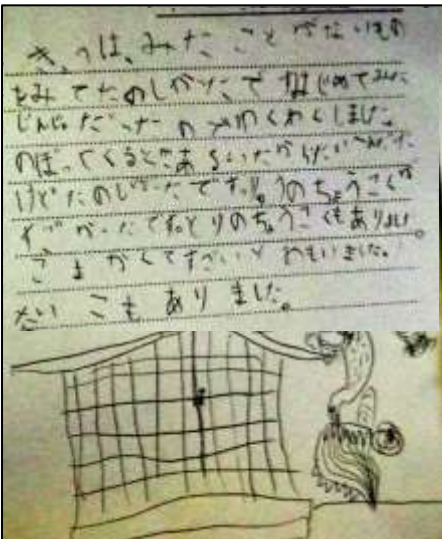 きょうは、みたことがないもの
をみてたのしかったではじめてみた
じんじゃだったのでわくわくしました。
のぼってくるときあるいたからたいへんだった
けどたのしかったです。りゅうのちょうこくが
すごかったです。とりのちょうこくもありました。
こまかくてすごいとおもいました。
たいこもありました。